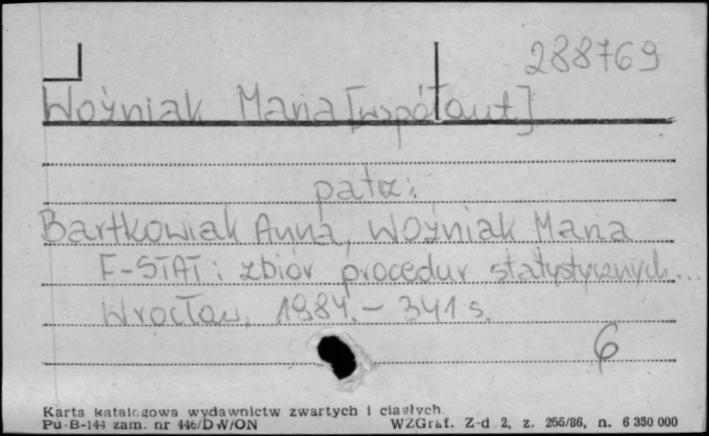 288769
Woźniak Maria [współaut]
patrz:
Bartkowiak Anna, Woźniak Maria
F-STAT: zbiór procedur statystycznych...
Wrocław, 1984. – 341 s.
6
Karta katalogowa wydawnictw zwartych i ciągłych.
Pu-B-144 zam. nr 446/DW/ON WZGraf. Z-d 2, z. 265/86, n. 6 350 000